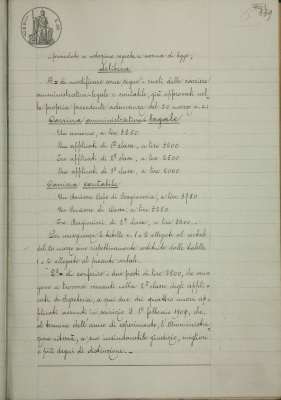 procedutosi a votazione segreta a norma di legge,
Delibera
1º- di modificare come segue i ruoli delle carriere
amministrativa-legale e contabile, già approvati nel-
la propria precedente adunanza del 30 marzo u.s.:
Carriera amministrativa legale
Un economo, a lire 3250
Due applicati di 1ª classe, a lire 3000
Tre applicati di 2ª classe, a lire 2500
Due applicati di 3ª classe, a lire 2000
Carriera contabile
Un Revisore Capo di Ragioneria, a lire 3750
Un Revisore di Cassa, a lire 3250
Tre Ragionieri di 2ª classe, a lire 3000,_
Per conseguenza le tabelle n. 1 e 2 allegate al verbale
del 30 marzo sono rispettivamente sostituite dalle tabelle
1 e 2 allegate al presente verbale.
2º- di conferire i due posti di lire 2500, che ven-
gono a trovarsi vacanti nella 2ª classe degli appli-
cati di segreteria, a quei due dei quattro nuovi ap-
plicati assunti in servizio il 1º febbraio 1909, che,
al termine dell'anno di esperimento, l'Amministra-
zione riterrà, a suo insindacabile giudizio, migliori
e più degni di distinzione._